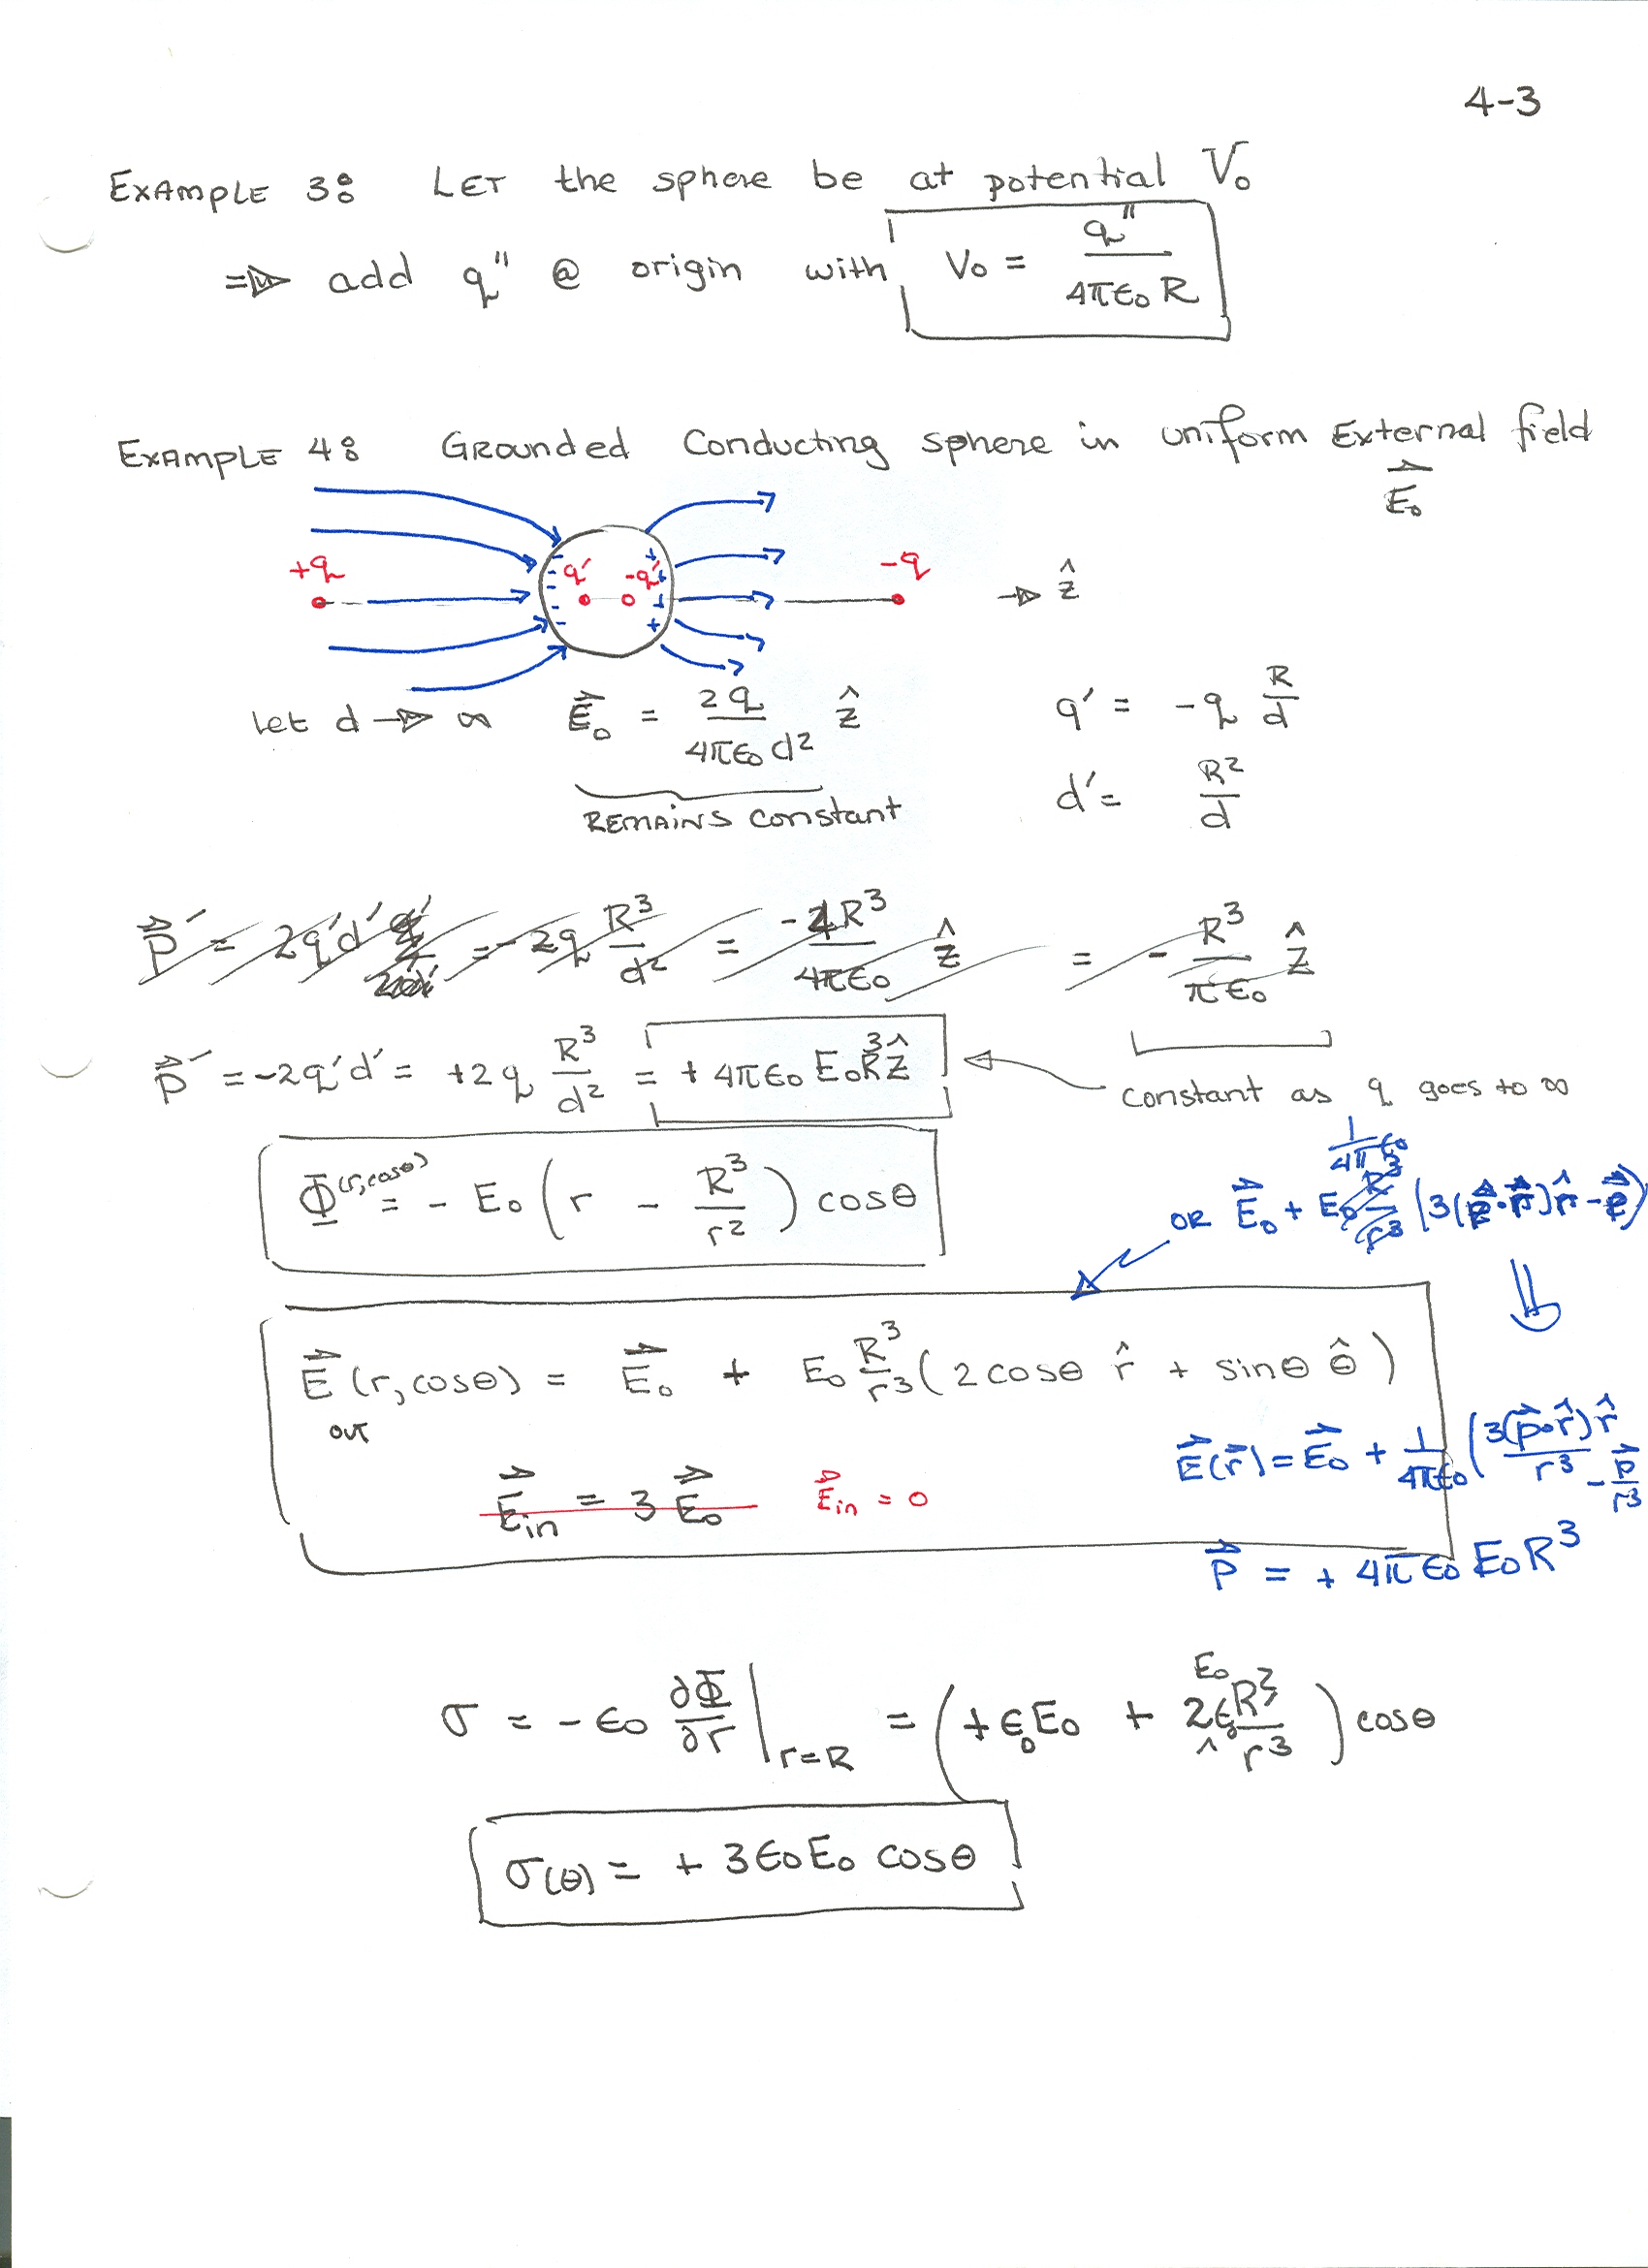 4-3
EXAMPLE 3: LET the sphere be at potential V₀
⇒ add q" @ origin with V₀ = q" / 4πϵ₀R
EXAMPLE 4: GROunded Conducting sphere in uniform External field E⃗₀
+q q' -q' -q → ẑ
Let d → ∞ E⃗₀ = 2q / 4πϵ₀d² ẑ q' = -q R/d
REMAINS constant d' = R²/d
p⃗' = 2q'd' = -2q R³/d² = -4R³ / 4πϵ₀ ẑ = - R³ / πϵ₀ ẑ
p⃗' = -2q'd' = +2q R³/d² = + 4πϵ₀E₀R³ẑ
constant as q goes to ∞
Φ(r,cosθ) = - E₀ ( r - R³/r² ) cosθ
OR E⃗₀ + 1/4πϵ₀ E₀ R³/r³ (3(p⃗·r̂)r̂ - p⃗)
E⃗out (r,cosθ) = E⃗₀ + E₀ R³/r³ ( 2cosθ r̂ + sinθ θ̂ )
E⃗(r⃗) = E⃗₀ + 1/4πϵ₀ ( 3(p⃗·r̂)r̂ / r³ - p⃗/r³
E⃗in = 3 E⃗₀ E⃗in = 0
p⃗ = + 4πϵ₀E₀R³
σ = -ϵ₀ ∂Φ/∂r |r=R = ( +ϵ₀E₀ + 2ϵ₀E₀ R³/r³ ) cosθ
σ(θ) = + 3ϵ₀E₀ cosθ